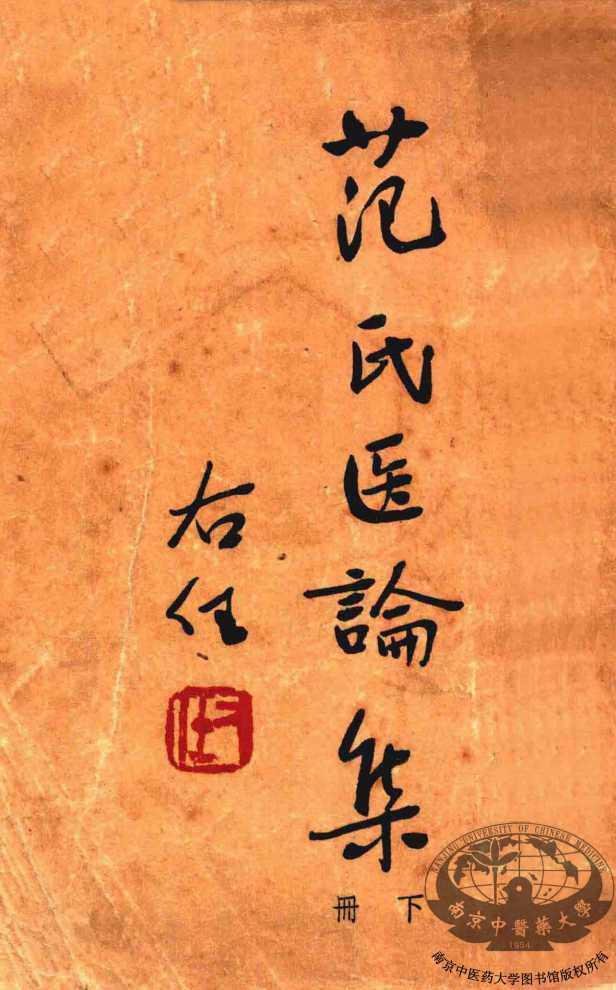 范氏医論集
右任
右任
下冊
NANJING UNIVERSITY OF CHINESE MEDICINE
南京中醫藥大學
1954
南京中医药大学图书馆版权所有